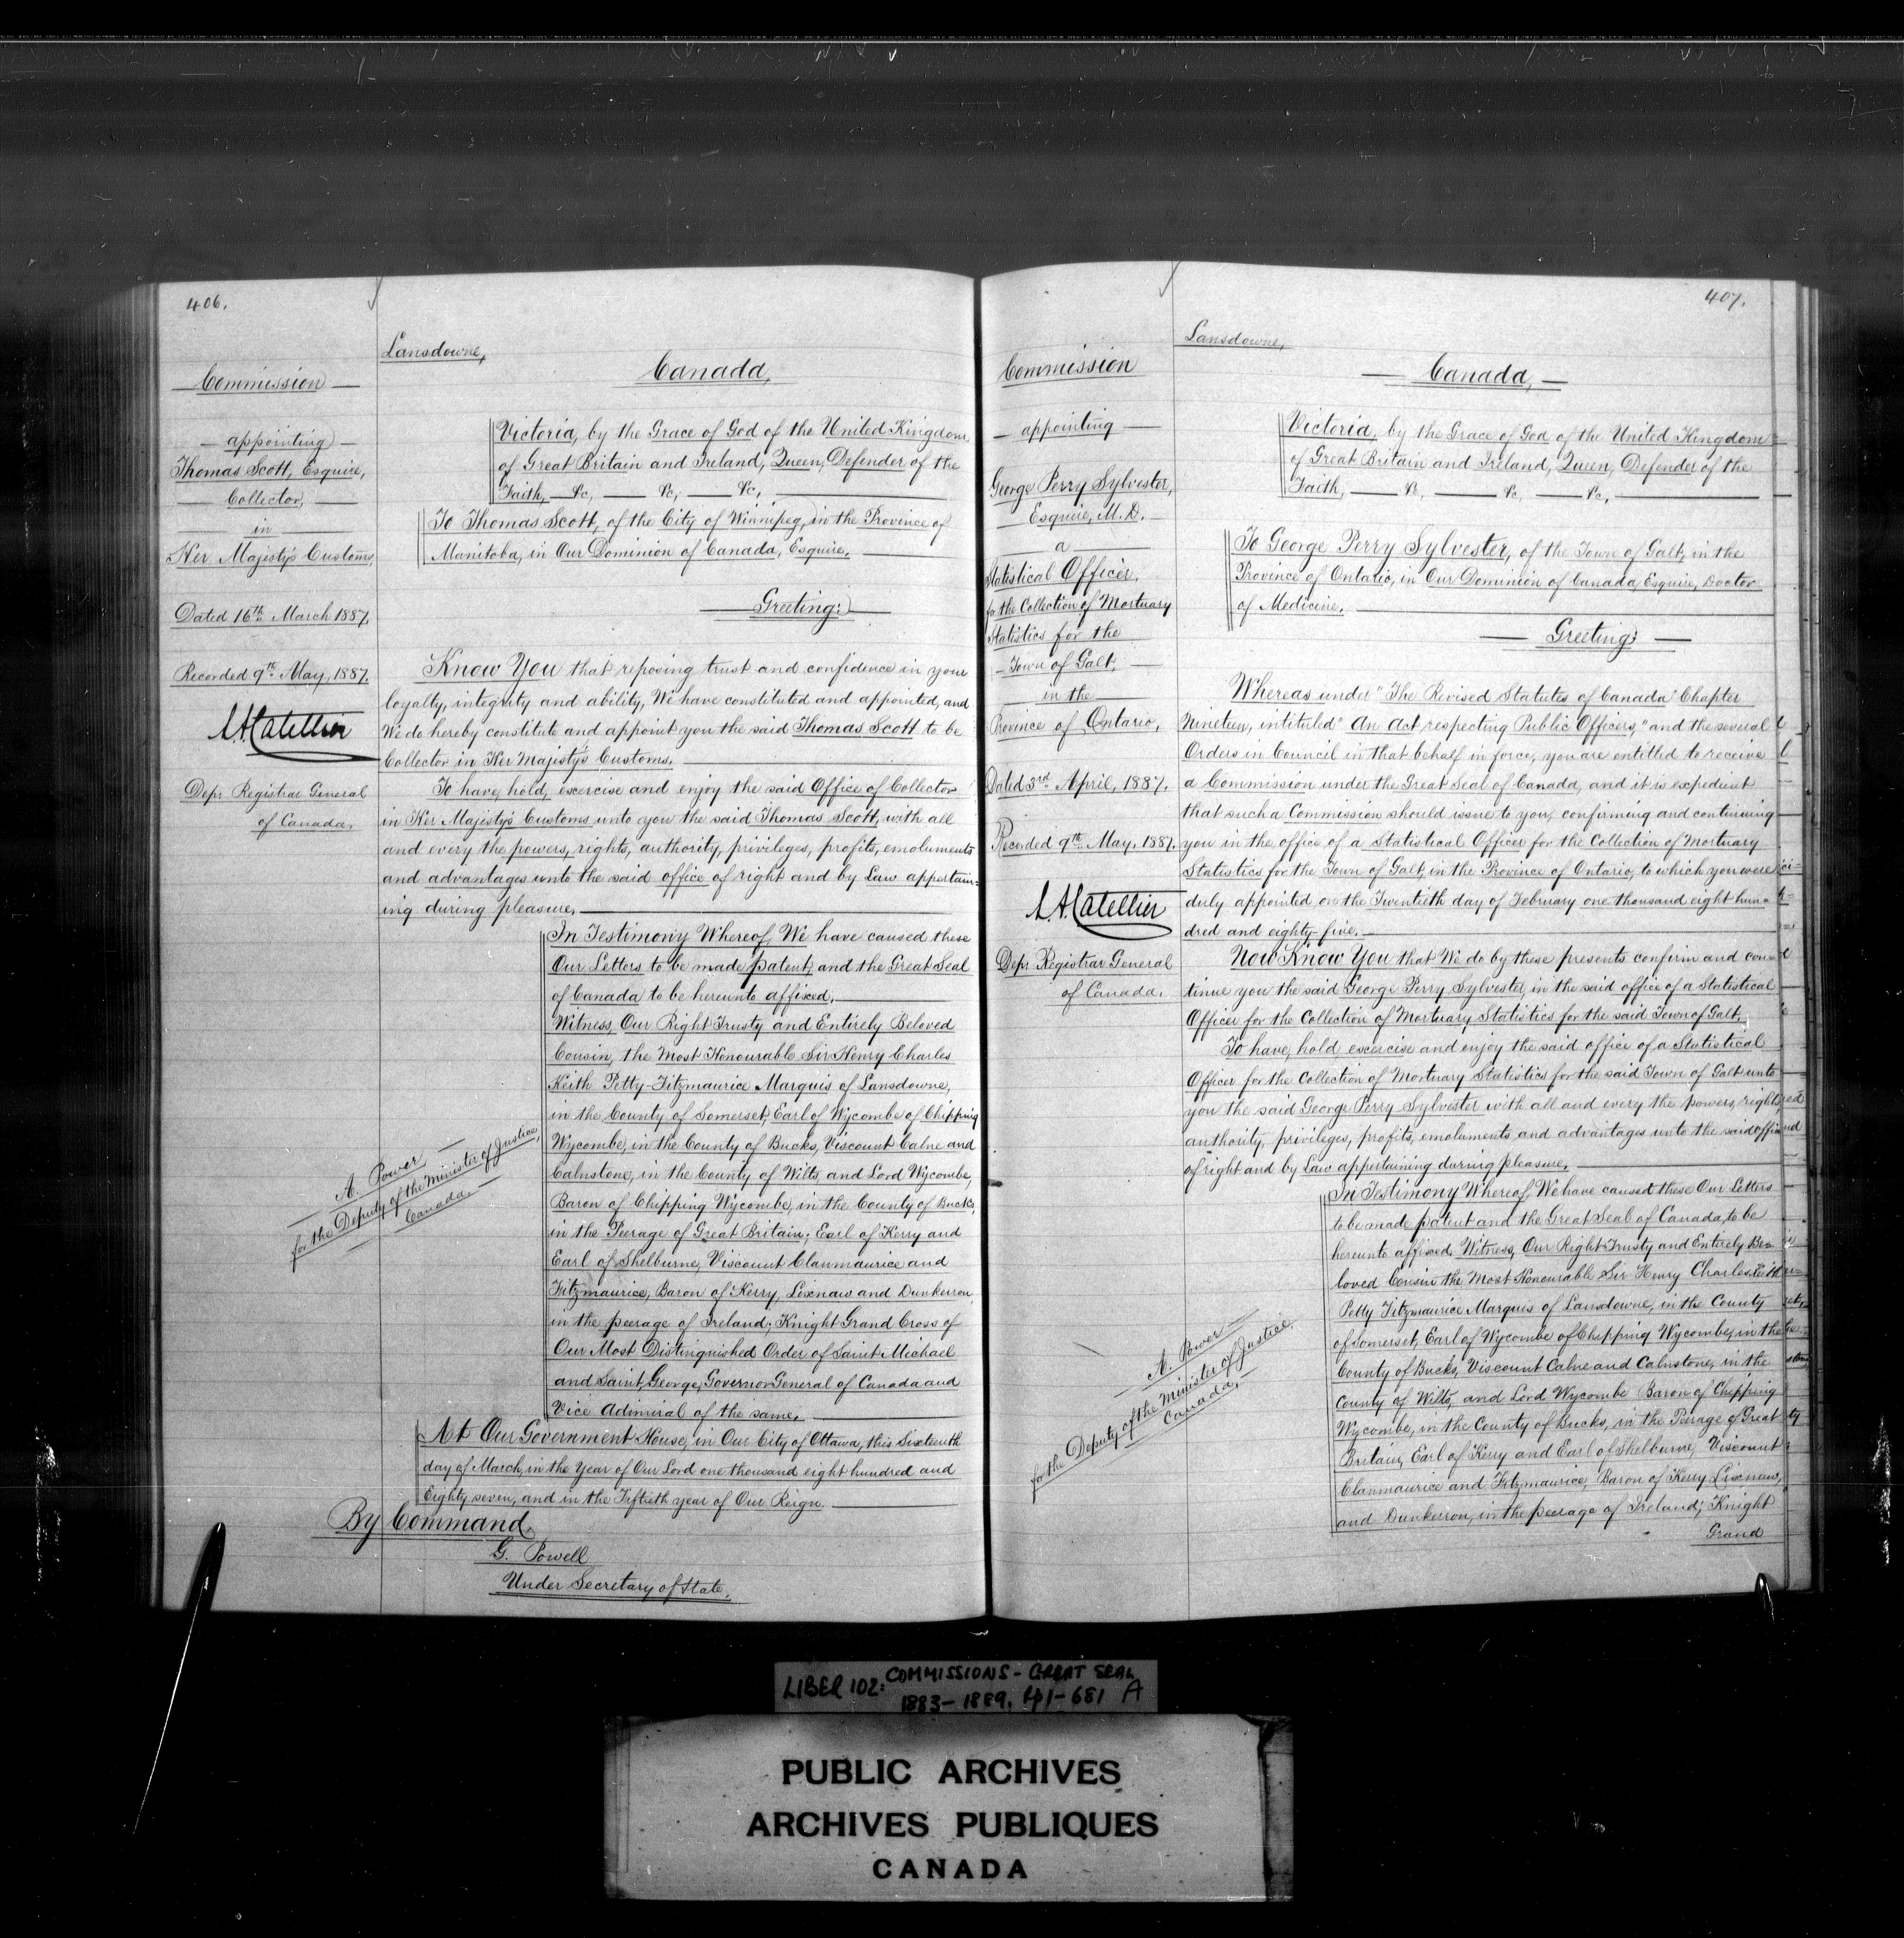 406.
Commission
appointing
Thomas Scott, Esquire,
Collector,
in
Her Majesty's Customs,
Dated 16th March 1887.
Recorded 9th May, 1887.
L. A. Catellier
Depy. Registrar General
of Canada,
A. Power
for the Deputy of the Minister of Justice,
Canada,
Lansdowne,
Canada,
Victoria, by the Grace of God of the United Kingdom
of Great Britain and Ireland, Queen, Defender of the
Faith, &c, &c, &c,
To Thomas Scott, of the City of Winnipeg, in the Province of
Manitoba, in Our Dominion of Canada, Esquire,
Greeting:
Know You that reposing trust and confidence in your
loyalty, integrity and ability, We have constituted and appointed, and
We do hereby constitute and appoint you the said Thomas Scott to be
Collector in Her Majesty's Customs.
To have, hold, excercise and enjoy the said Office of Collector
in Her Majesty's Customs unto you the said Thomas Scott, with all
and every the powers, rights, authority, privileges, profits, emoluments
and advantages unto the said office of right and by Law appertain=
ing during pleasure.
In Testimony Whereof, We have caused these
Our Letters to be made patent, and the Great Seal
of Canada to be hereunto affixed.
Witness, Our Right Trusty and Entirely Beloved
Cousin, the Most Honourable Sir Henry Charles
Keith Petty-Fitzmaurice Marquis of Lansdowne,
in the County of Somerset, Earl of Wycombe of Chipping
Wycombe, in the County of Bucks, Viscount Calne and
Calnstone, in the County of Wilts, and Lord Wycombe,
Baron of Chipping Wycombe, in the County of Bucks,
in the Peerage of Great Britain; Earl of Kerry and
Earl of Shelburne, Viscount Clanmaurice and
Fitzmaurice, Baron of Kerry, Lixnaw and Dunkerron,
in the peerage of Ireland; Knight Grand Cross of
Our Most Distinguished Order of Saint Michael
and Saint George, Governor General of Canada and
Vice Admiral of the same.
At Our Government House, in Our City of Ottawa, this Sixteenth
day of March, in the Year of Our Lord one thousand eight hundred and
Eighty seven, and in the Fiftieth year of Our Reign.
By Command,
G. Powell
Under Secretary of State.
407.
Commission
appointing
George Perry Sylvester,
Esquire, M.D.
a
Statistical Officer,
for the Collection of Mortuary
Statistics for the
Town of Galt,
in the
Province of Ontario,
Dated 3rd April, 1887.
Recorded 9th May, 1887.
L. A. Catellier
Depy. Registrar General
of Canada.
A. Power
for the Deputy of the Minister of Justice,
Canada,
Lansdowne,
Canada,
Victoria, by the Grace of God of the United Kingdom
of Great Britain and Ireland, Queen, Defender of the
Faith, &c, &c, &c,
To George Perry Sylvester, of the Town of Galt, in the
Province of Ontario, in Our Dominion of Canada, Esquire, Doctor
of Medicine,
Greeting:
Whereas under "The Revised Statutes of Canada" Chapter
Nineteen, intituled "An Act respecting Public Officers," and the several
Orders in Council in that behalf in force, you are entitled to receive
a Commission under the Great Seal of Canada, and it is expedient
that such a Commission should issue to you, confirming and continuing
you in the office of a Statistical Officer for the Collection of Mortuary
Statistics for the Town of Galt, in the Province of Ontario, to which you were
duly appointed on the Twentieth day of February one thousand eight hun=
dred and eighty-five.
Now Know You that We do by these presents confirm and con=
tinue you the said George Perry Sylvester, in the said office of a Statistical
Officer for the Collection of Mortuary Statistics for the said Town of Galt.
To have, hold excercise and enjoy the said office of a Statistical
Officer for the Collection of Mortuary Statistics for the said Town of Galt unto
you the said George Perry Sylvester with all and every the powers, rights,
authority, privileges, profits, emoluments and advantages unto the said office
of right and by Law appertaining during pleasure.
In Testimony Whereof, We have caused these Our Letters
to be made patent and the Great Seal of Canada, to be
hereunto affixed. Witness, Our Right Trusty and Entirely Be=
loved Cousin the Most Honourable Sir Henry Charles Keith
Petty Fitzmaurice Marquis of Lansdowne, in the County
of Somerset, Earl of Wycombe of Chipping Wycombe, in the
County of Bucks, Viscount Calne and Calnstone, in the
County of Wilts, and Lord Wycombe Baron of Chipping
Wycombe, in the County of Bucks, in the Peerage of Great
Britain, Earl of Kerry and Earl of Shelburne, Viscount
Clanmaurice and Fitzmaurice, Baron of Kerry Lixnaw,
and Dunkerron, in the peerage of Ireland; Knight
Grand
LIBER 102: COMMISSIONS - GREAT SEAL
1883-1889. 41-681 A
PUBLIC ARCHIVES
ARCHIVES PUBLIQUES
CANADA